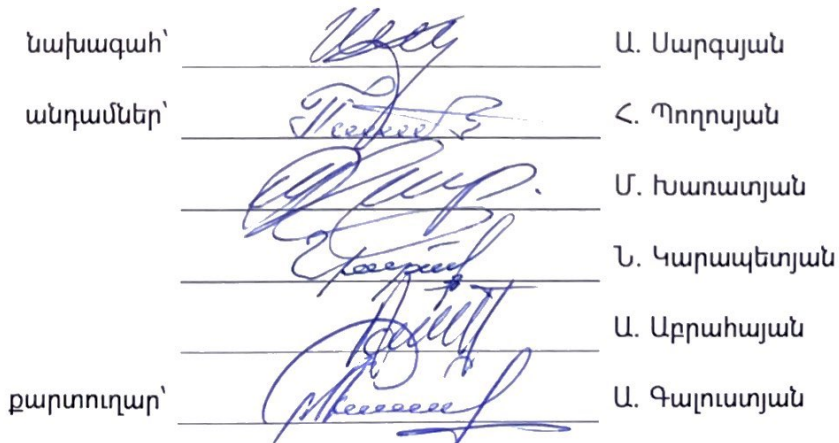 նախագահ՝ Ա. Սարգսյան
անդամներ՝ Հ. Պողոսյան
Մ. Խառատյան
Ն. Կարապետյան
Ա. Աբրահայան
քարտուղար՝ Ա. Գալուստյան